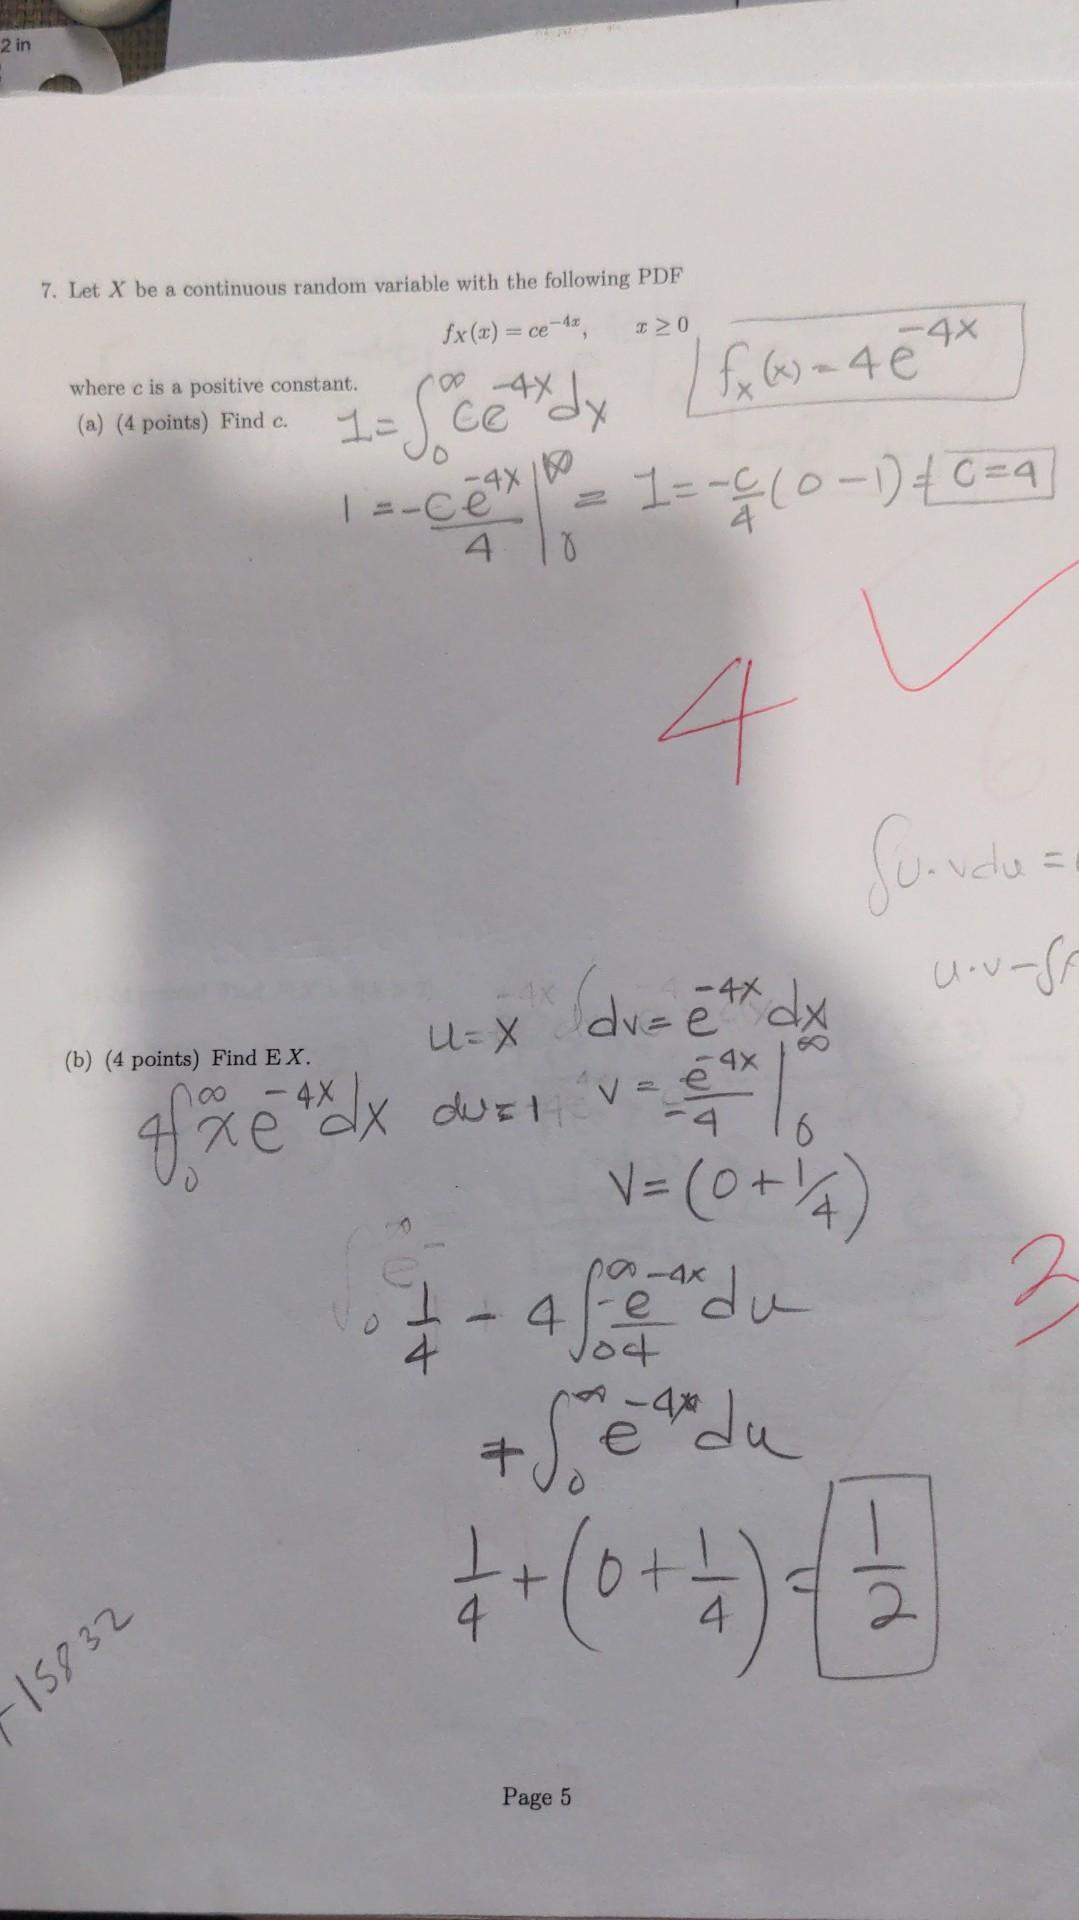 2 in
7. Let X be a continuous random variable with the following PDF
fX(x) = ce^{-4x}, x ≥ 0
f_x(x) = 4e^{-4x}
where c is a positive constant.
(a) (4 points) Find c.
1 = ∫_0^∞ ce^{-4x} dx
1 = -ce^{-4x}/4 |_0^∞ = 1 = -c/4 (0 - 1) = C = 4
4 ✓
∫u·vdu =
u·v - ∫
u = x ∫dv = e^{-4x} dx
(b) (4 points) Find E X.
4∫_0^∞ xe^{-4x} dx du = 1 v = e^{-4x}/-4 |_0^∞
v = (0 + 1/4)
1/4 - 4∫_0^∞ -e^{-4x}/4 du
3
+ ∫_0^∞ e^{-4x} du
1/4 + (0 + 1/4) = 1/2
15832
Page 5